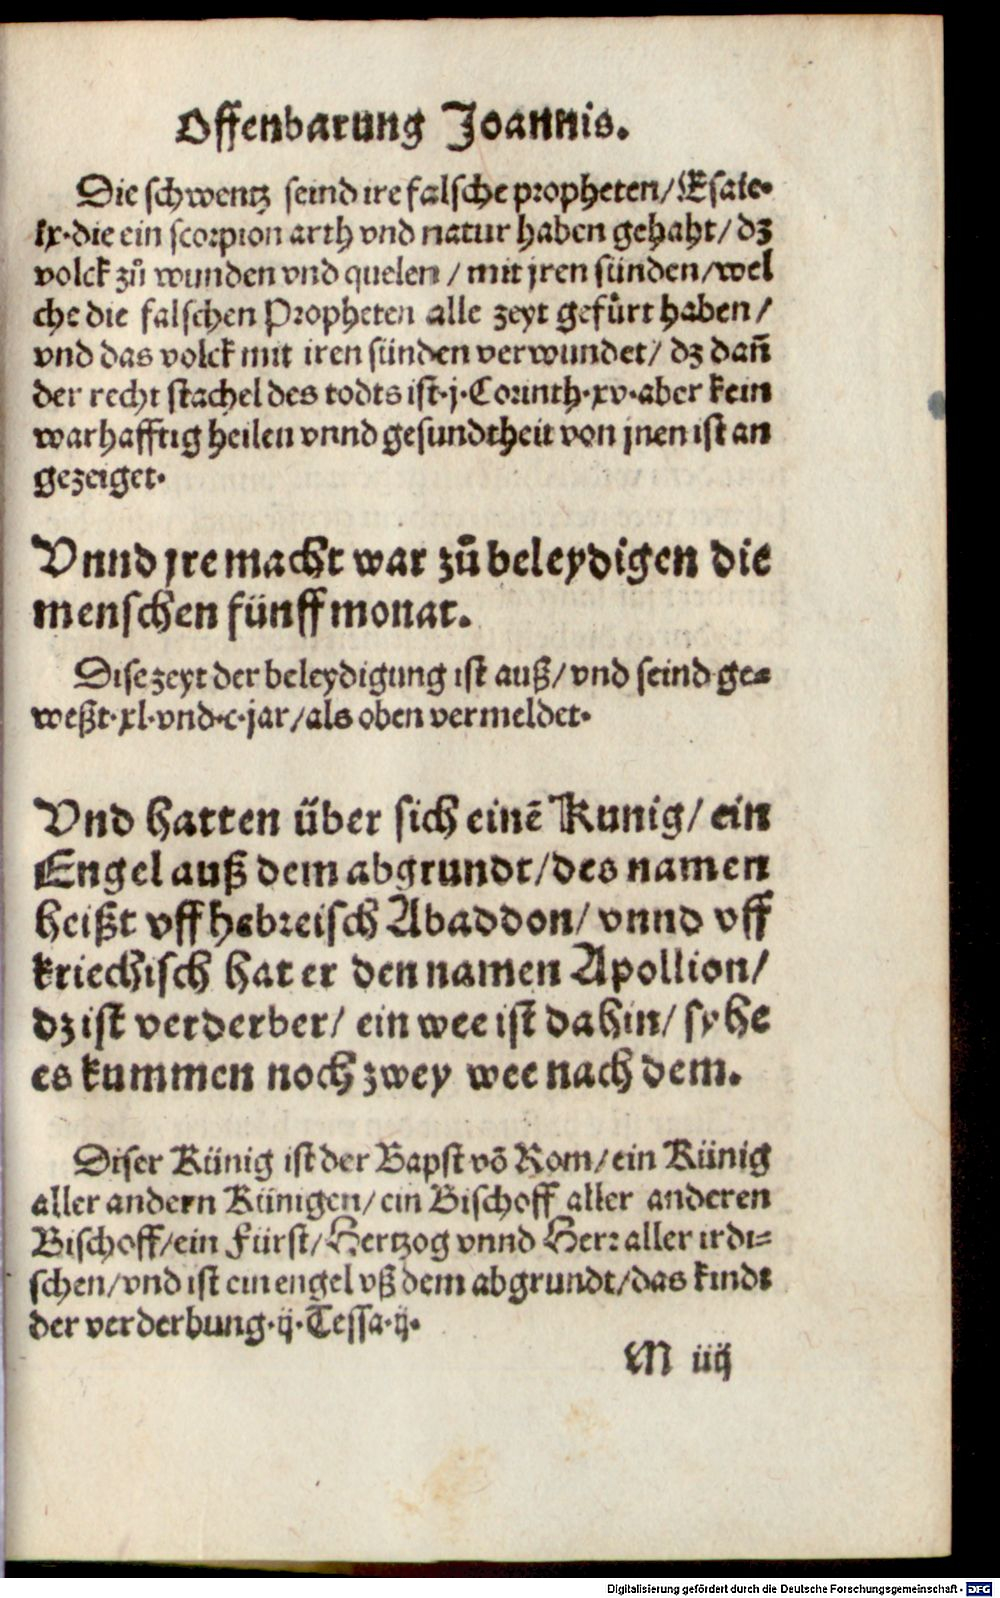 Offenbarung Joannis.
Die schwentz seind ire falsche propheten/ Esaie·
ix·die ein scorpion arth vnd natur haben gehaht/ dz
volck zů wunden vnd quelen / mit jren sünden/wel
che die falschen Propheten alle zeyt gefůrt haben /
vnd das volck mit iren sünden verwundet/ dz dañ
der recht stachel des todts ist·j·Corinth·xv·aber kein
warhafftig heilen vnnd gesundtheit von jnen ist an
gezeiget·
Vnnd jre macht war zů beleydigen die
menschen fünff monat.
Dise zeyt der beleydigung ist auß/ vnd seind ge⸗
weßt·xl·vnd·c·jar/als oben vermeldet·
Vnd hatten über sich einē Kunig/ ein
Engel auß dem abgrundt/des namen
heißt vff hebreisch Abaddon/ vnnd vff
kriechisch hat er den namen Apollion/
dz ist verderber/ ein wee ist dahin/ syhe
es kummen noch zwey wee nach dem.
Diser Künig ist der Bapst vō Rom/ein Künig
aller andern Künigen/ ein Bischoff aller anderen
Bischoff/ein Fürst/Hertzog vnnd Herr aller irdi⸗
schen/vnd ist ein engel vß dem abgrundt/das kindt
der verderbung·ij·Tessa·ij·
M iiij
Digitalisierung gefördert durch die Deutsche Forschungsgemeinschaft - DFG